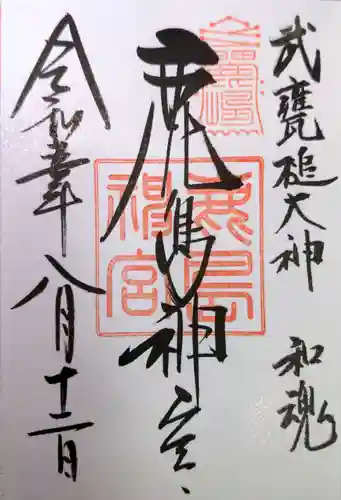 武甕槌大神 和魂
鹿島神宮
鹿島神宮
令和五年八月十二日